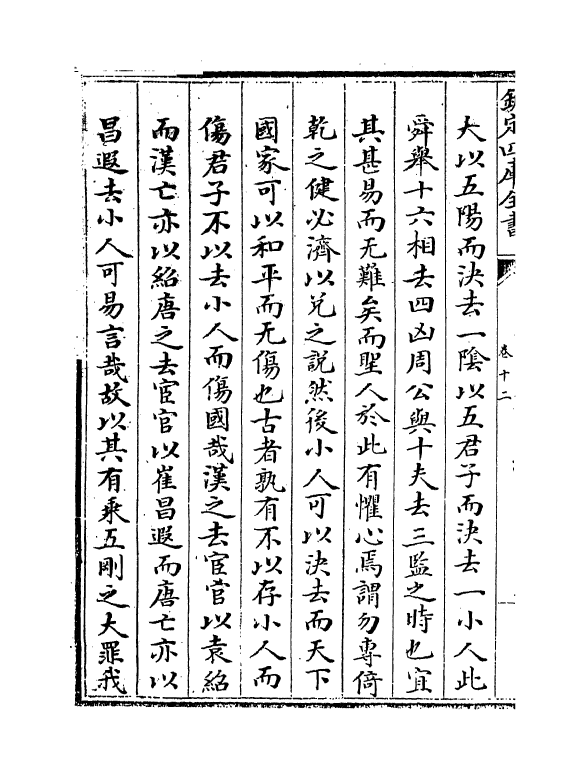 欽定四庫全書
卷十二
大以五陽而決去一隂以五君子而決去一小人此
舜舉十六相去四凶周公與十夫去三監之時也宜
其甚易而无難矣而聖人於此有懼心焉謂勿專倚
乾之健必濟以兌之説然後小人可以決去而天下
國家可以和平而无傷也古者孰有不以存小人而
傷君子不以去小人而傷國哉漢之去宦官以袁紹
而漢亡亦以紹唐之去宦官以崔昌遐而唐亡亦以
昌遐去小人可易言哉故以其有乘五剛之大罪我